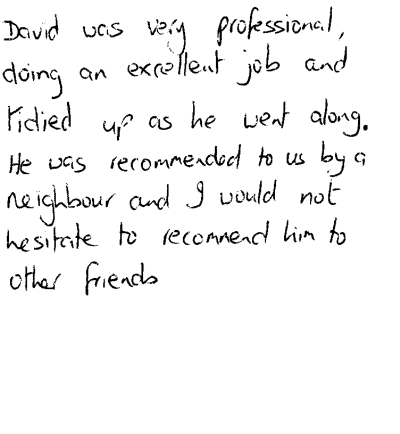 David was very professional,
doing an excellent job and
tidied up as he went along.
He was recommended to us by a
neighbour and I would not
hesitate to recommend him to
other friends